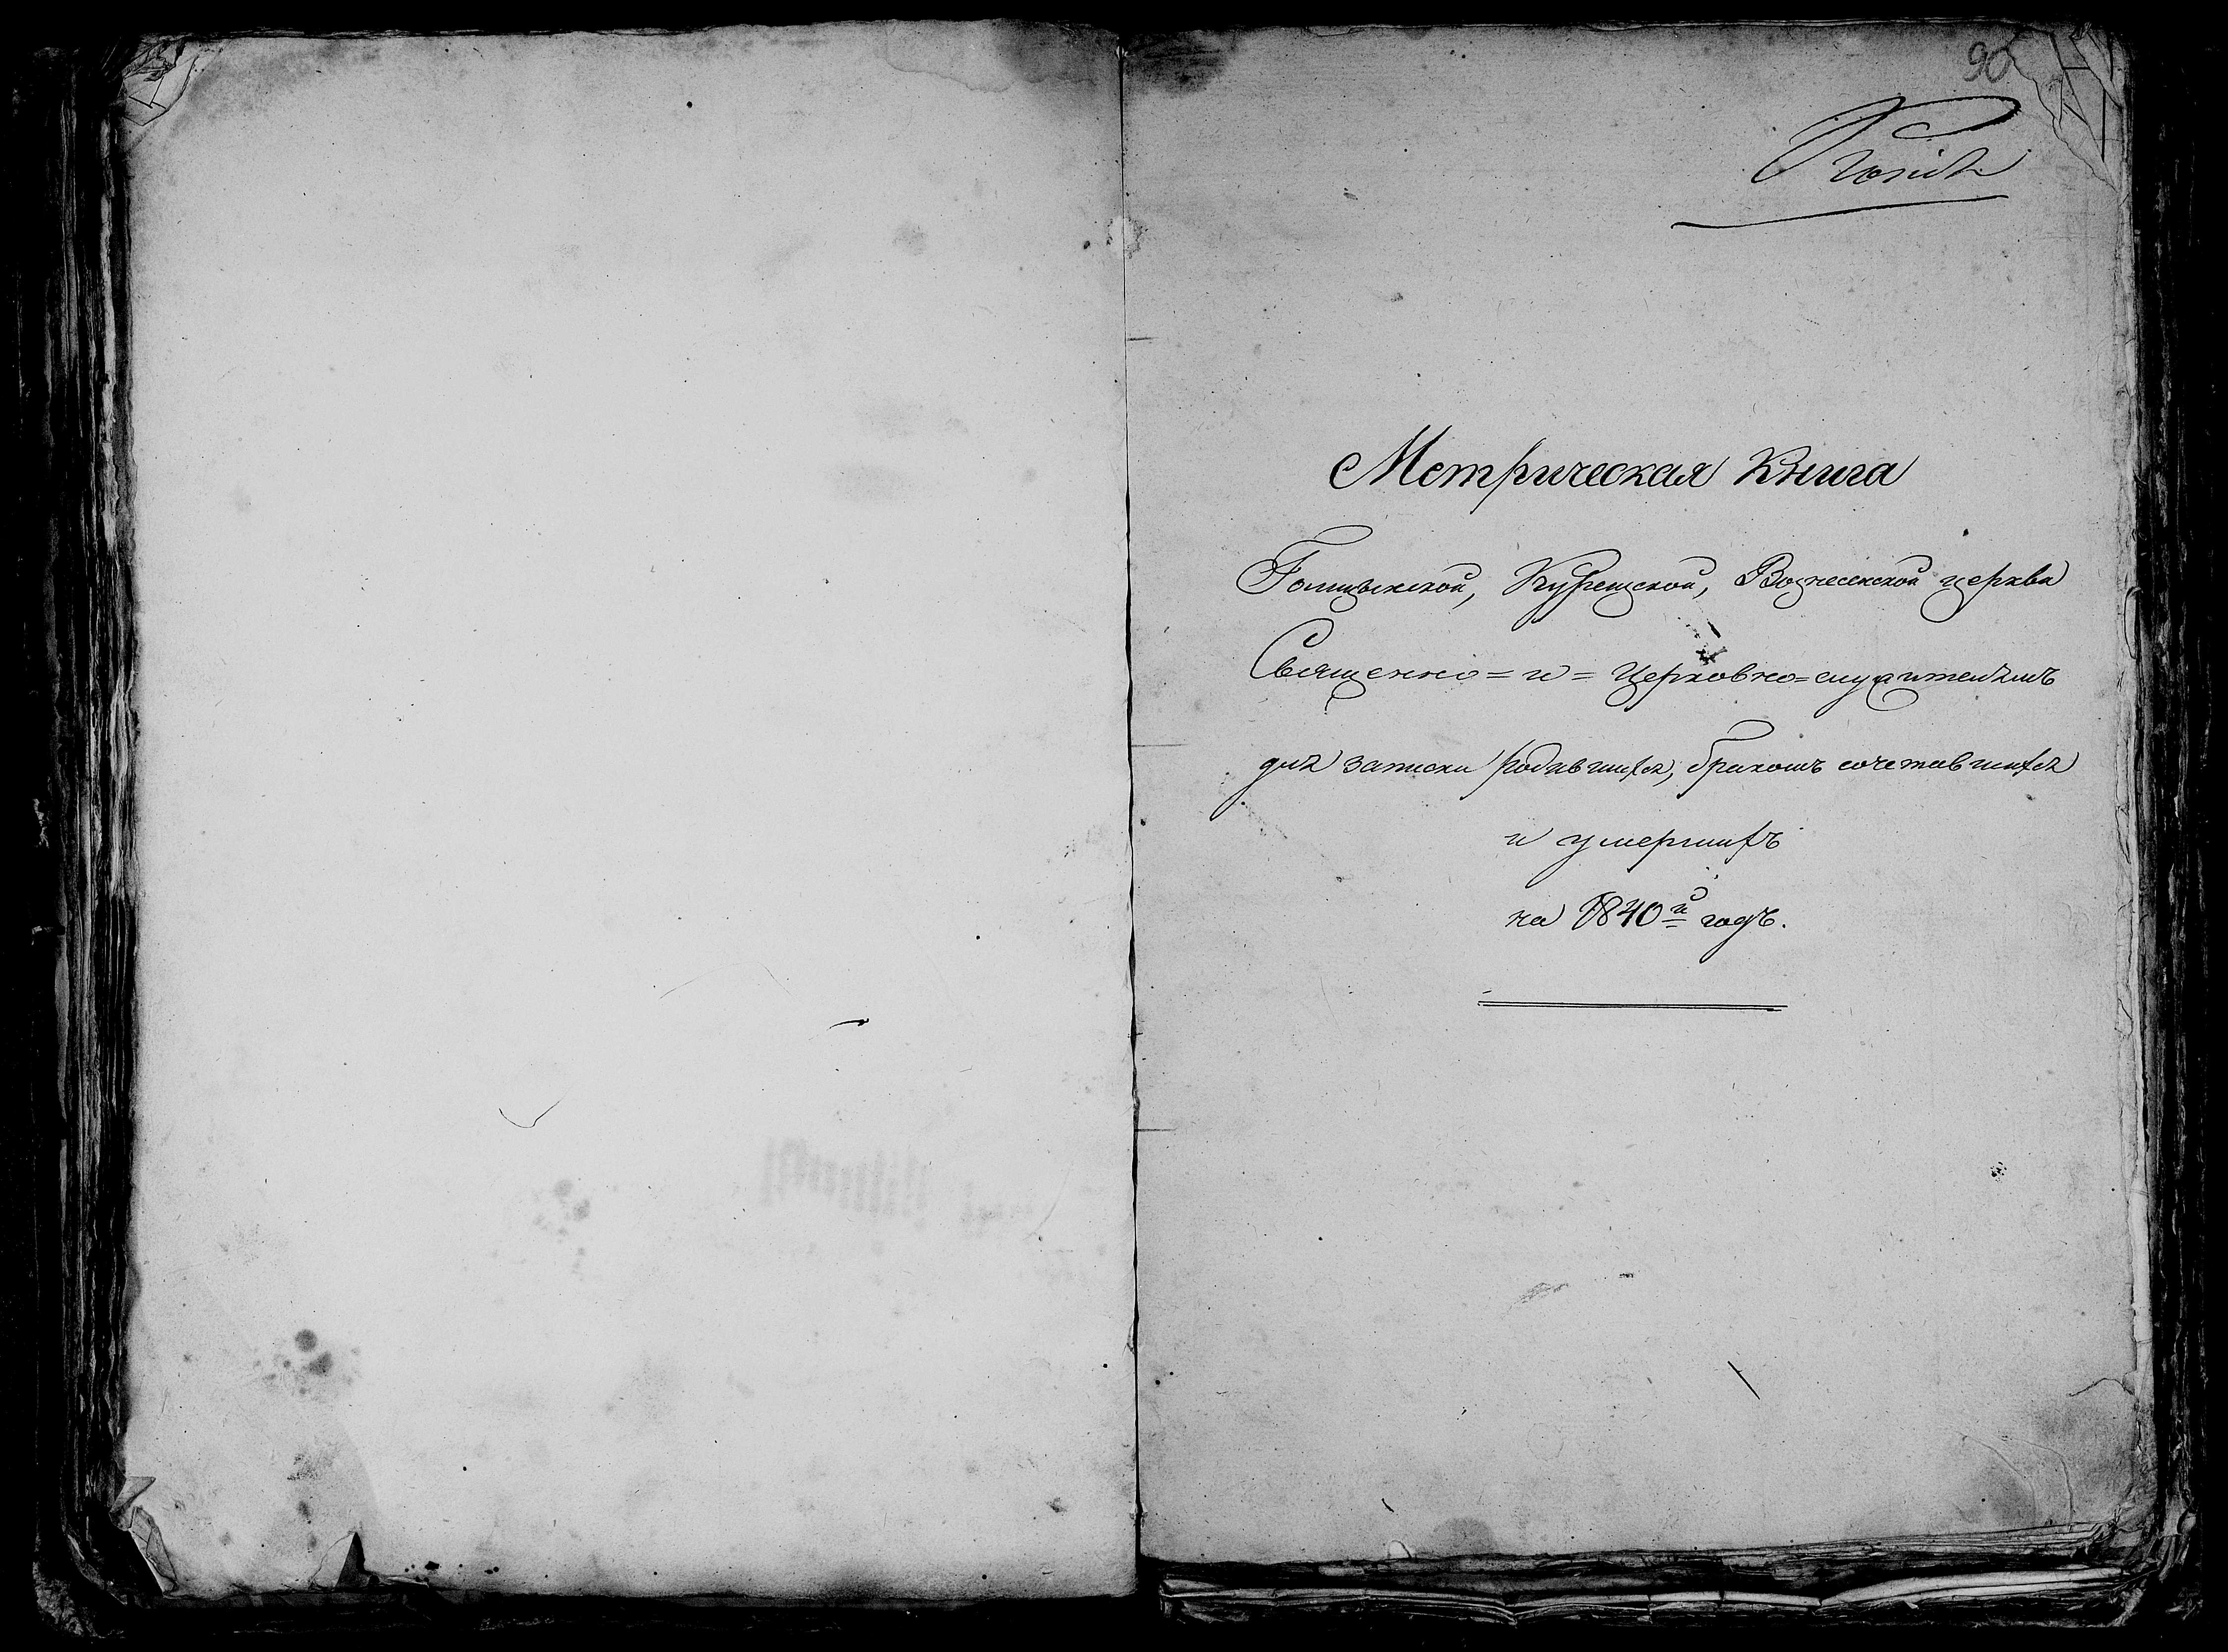 90
Копія
Метрическая Книга
Голицынской, Курецской, Вознесенской церкви
Священно=и=Церковно=служителямъ
для записки родившихся, бракомъ сочетавшихся
и умершихъ
на 1840й годъ.